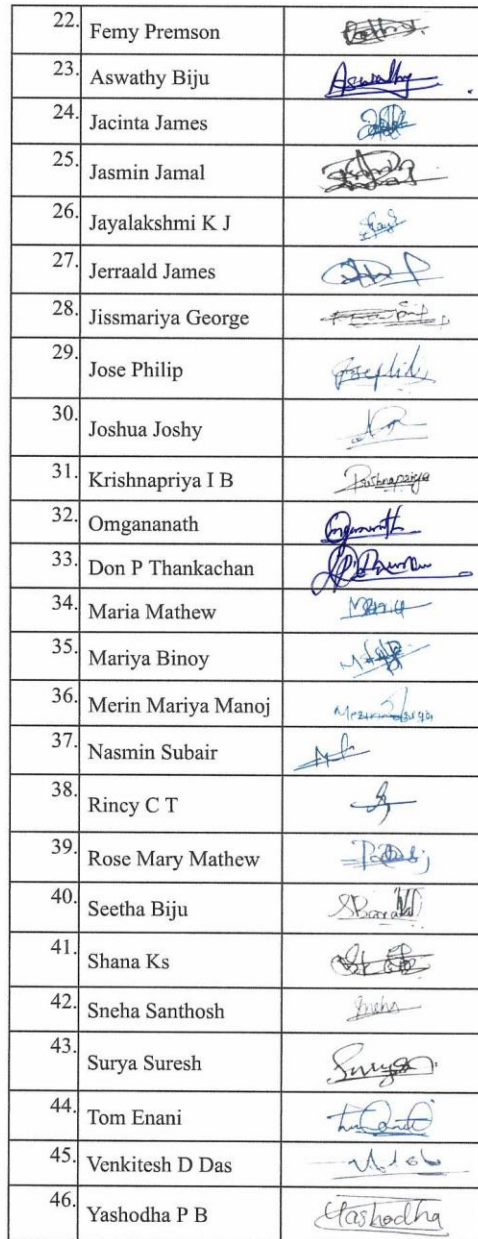 22. Femy Premson
23. Aswathy Biju Aswathy
24. Jacinta James
25. Jasmin Jamal
26. Jayalakshmi K J
27. Jerraald James
28. Jissmariya George
29. Jose Philip
30. Joshua Joshy
31. Krishnapriya I B Krishnapriya
32. Omgananath
33. Don P Thankachan
34. Maria Mathew
35. Mariya Binoy
36. Merin Mariya Manoj
37. Nasmin Subair
38. Rincy C T
39. Rose Mary Mathew
40. Seetha Biju
41. Shana Ks
42. Sneha Santhosh Sneha
43. Surya Suresh Surya
44. Tom Enani
45. Venkitesh D Das
46. Yashodha P B Yashodha